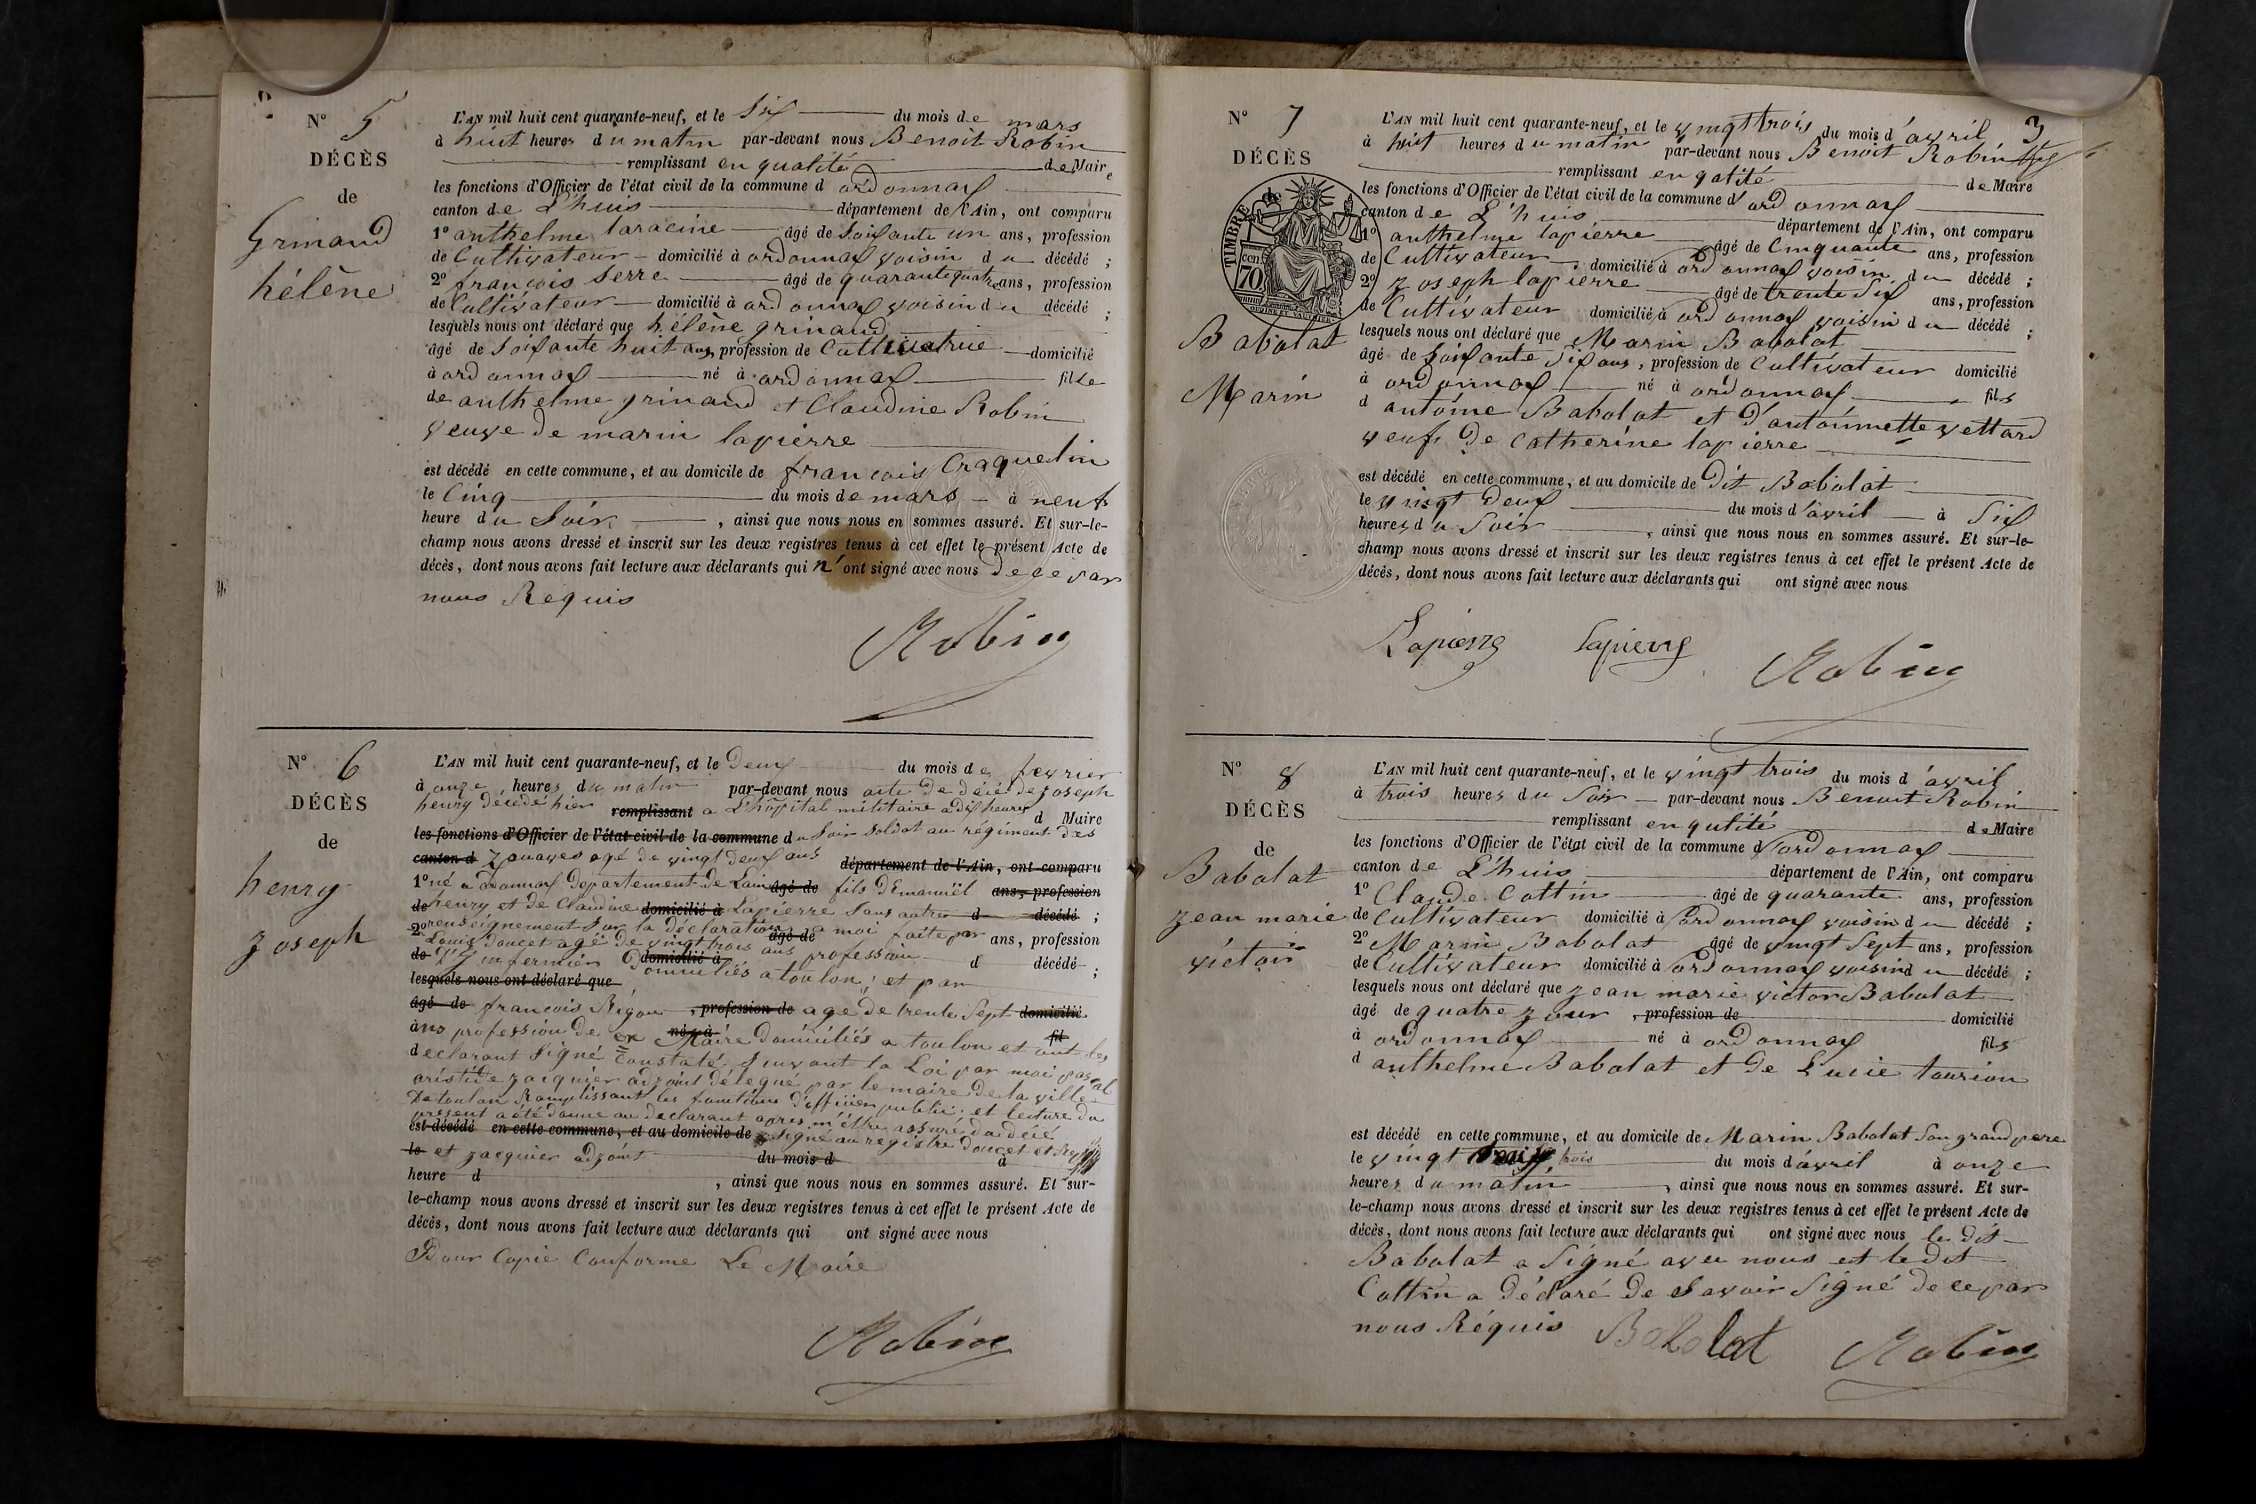 N° 5
DÉCÈS
de
Grinand
hélène
L'AN mil huit cent quarante-neuf, et le six du mois de mars
à huit heures du matin par-devant nous Benoit Robin
remplissant en qualité de Maire
les fonctions d'Officier de l'état civil de la commune d ordonnax
canton de L'huis département de l'Ain, ont comparu
1° anthelme laracine âgé de soixante un ans, profession
de Cultivateur domicilié à ordonnax voisin du décédé ;
2° françois Serre âgé de quarante quatre ans, profession
de Cultivateur domicilié à ordonnax voisin du décédé ;
lesquels nous ont déclaré que hélène grinand
âgé de soixante huit ans, profession de Cultivatrice domicilié
à ordonnax né à ordonnax fille
de anthelme grinand et Claudine Robin
veuve de marin lapierre
est décédé en cette commune, et au domicile de françois Craquelin
le Cinq du mois de mars à neuf
heure du Soir , ainsi que nous nous en sommes assuré. Et sur-le-
champ nous avons dressé et inscrit sur les deux registres tenus à cet effet le présent Acte de
décès, dont nous avons fait lecture aux déclarants qui n'ont signé avec nous de ce par
nous Requis
Robin
N° 6
DÉCÈS
de
henry
joseph
L'AN mil huit cent quarante-neuf, et le Deux du mois de fevrier
à onze heures du matin par-devant nous acte de décé de joseph
henry décédé hier remplissant a L'hôpital militaire a dix heures d Maire
les fonctions d'Officier de l'état civil de la commune du Soir Soldat au régiment des
canton d Zouaves agé de vingt deux ans département de l'Ain, ont comparu
1° né a ordonnax Departement de Lain âgé de fils d'Emanuël ans, profession
de henry et de Claudine domicilié à Lapierre Sans autre d décédé ;
2° renseignement Sur la déclaration a moi faite par âgé de ans, profession
Louis doucet agé de vingt trois ans profession
de d'infermier domicilié à Domiciliés a toulon, et par d décédé ;
lesquels nous ont déclaré que
âgé de françois Rigou , profession de age de trente Sept domicilié
ans profession de né à domiciliés a toulon et ont les fil
declarant Signé Constaté Suivant la Loi par moi pascal
aristide jacquier adjoint délégué par le maire de la ville
De toulon Remplissant les fonctions d'officier public et lecture du
present a été donné au declarant apres m'être assuré du décé
est décédé en cette commune, et au domicile de Signé au registre doucet et
le et jacquier adjoint du mois d à
heure d , ainsi que nous nous en sommes assuré. Et sur-
le-champ nous avons dressé et inscrit sur les deux registres tenus à cet effet le présent Acte de
décès, dont nous avons fait lecture aux déclarants qui ont signé avec nous
Pour Copie Conforme Le Maire
Robin
3
N° 7
DÉCÈS
de
TIMBRE
70 cen
Babolat
Marin
L'AN mil huit cent quarante-neuf, et le vingt trois du mois d'avril
à huit heures du matin par-devant nous Benoit Robin
remplissant en qatité de Maire
les fonctions d'Officier de l'état civil de la commune d'ordonnax
canton de L'huis département de l'Ain, ont comparu
1° anthelme lapierre âgé de Cinquante ans, profession
de Cultivateur domicilié à ordonnax voisin du décédé ;
2° joseph lapierre âgé de trente Six ans, profession
de Cultivateur domicilié à ordonnax voisin du décédé ;
lesquels nous ont déclaré que Marin Babolat
âgé de soixante Six ans, profession de Cultivateur domicilié
à ordonnax né à ordonnax fils
d antoine Babolat et d'antoinnette vettard
veuf De Catherine lapierre
est décédé en cette commune, et au domicile de Dit Babolat
le vingt Deux du mois d'avril à Six
heures du Soir , ainsi que nous nous en sommes assuré. Et sur-le-
champ nous avons dressé et inscrit sur les deux registres tenus à cet effet le présent Acte de
décès, dont nous avons fait lecture aux déclarants qui ont signé avec nous
Lapierre lapierre Robin
N° 8
DÉCÈS
de
Babolat
jean marie
victoir
L'AN mil huit cent quarante-neuf, et le vingt trois du mois d'avril
à trois heures du Soir par-devant nous Benoit Robin
remplissant en qutité de Maire
les fonctions d'Officier de l'état civil de la commune d'ordonnax
canton de L'huis département de l'Ain, ont comparu
1° Claude Cottin âgé de quarante ans, profession
de Cultivateur domicilié à ordonnax voisin du décédé ;
2° Marin Babolat âgé de vingt Sept ans, profession
de Cultivateur domicilié à ordonnax voisin du décédé ;
lesquels nous ont déclaré que jean marie victor Babolat
âgé de quatre jour , profession de domicilié
à ordonnax né à ordonnax fils
d anthelme Babolat et de Lucie tourion
est décédé en cette commune, et au domicile de Marin Babolat Son grand pere
le vingt trois du mois d'avril à onze
heures du matin , ainsi que nous nous en sommes assuré. Et sur-
le-champ nous avons dressé et inscrit sur les deux registres tenus à cet effet le présent Acte de
décès, dont nous avons fait lecture aux déclarants qui ont signé avec nous le dit
Babolat a Signé avec nous et le dit
Cottin a déclaré de Savoir Signé de ce par
nous Réquis Babolat Robin